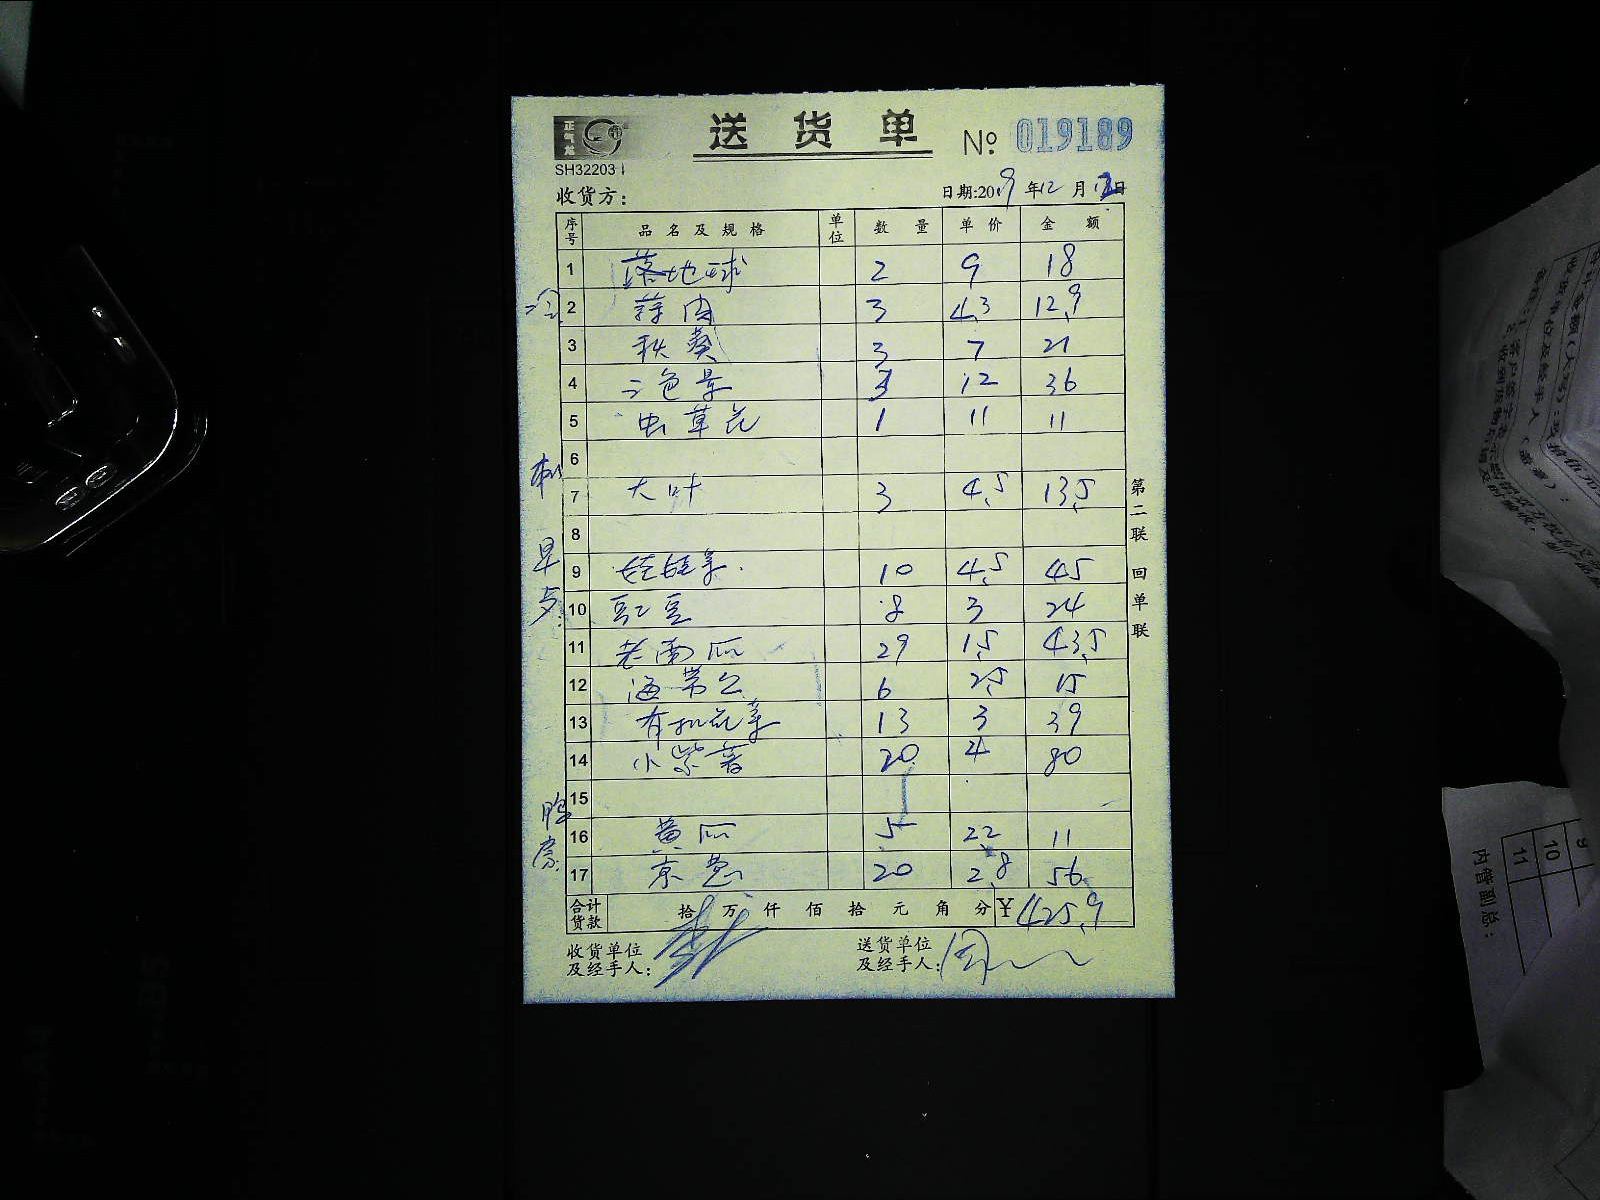 正气龙
送货单 № 019189
SH32203-1
收货方: 日期:2019年12月13日
序号 品名及规格 单位 数量 单价 金额
1 落地球 2 9 18
2 蒜肉 3 4.3 12.9
3 秋葵 3 7 21
4 三色堇 3 12 36
5 虫草花 1 11 11
6
7 大叶 3 4.5 13.5
8
早点:
9 娃娃菜 10 4.5 45
10 豇豆 8 3 24
11 老南瓜 29 1.5 43.5
12 海带 6 2.5 15
13 有机花菜 13 3 39
14 小紫薯 20 4 80
15
16 黄瓜 5 2.2 11
17 京葱 20 2.8 56
合计货款 拾 万 仟 佰 拾 元 角 分 ¥425.9
收货单位及经手人: 送货单位及经手人:周
第二联 回单联
9
10
11
内管副总: